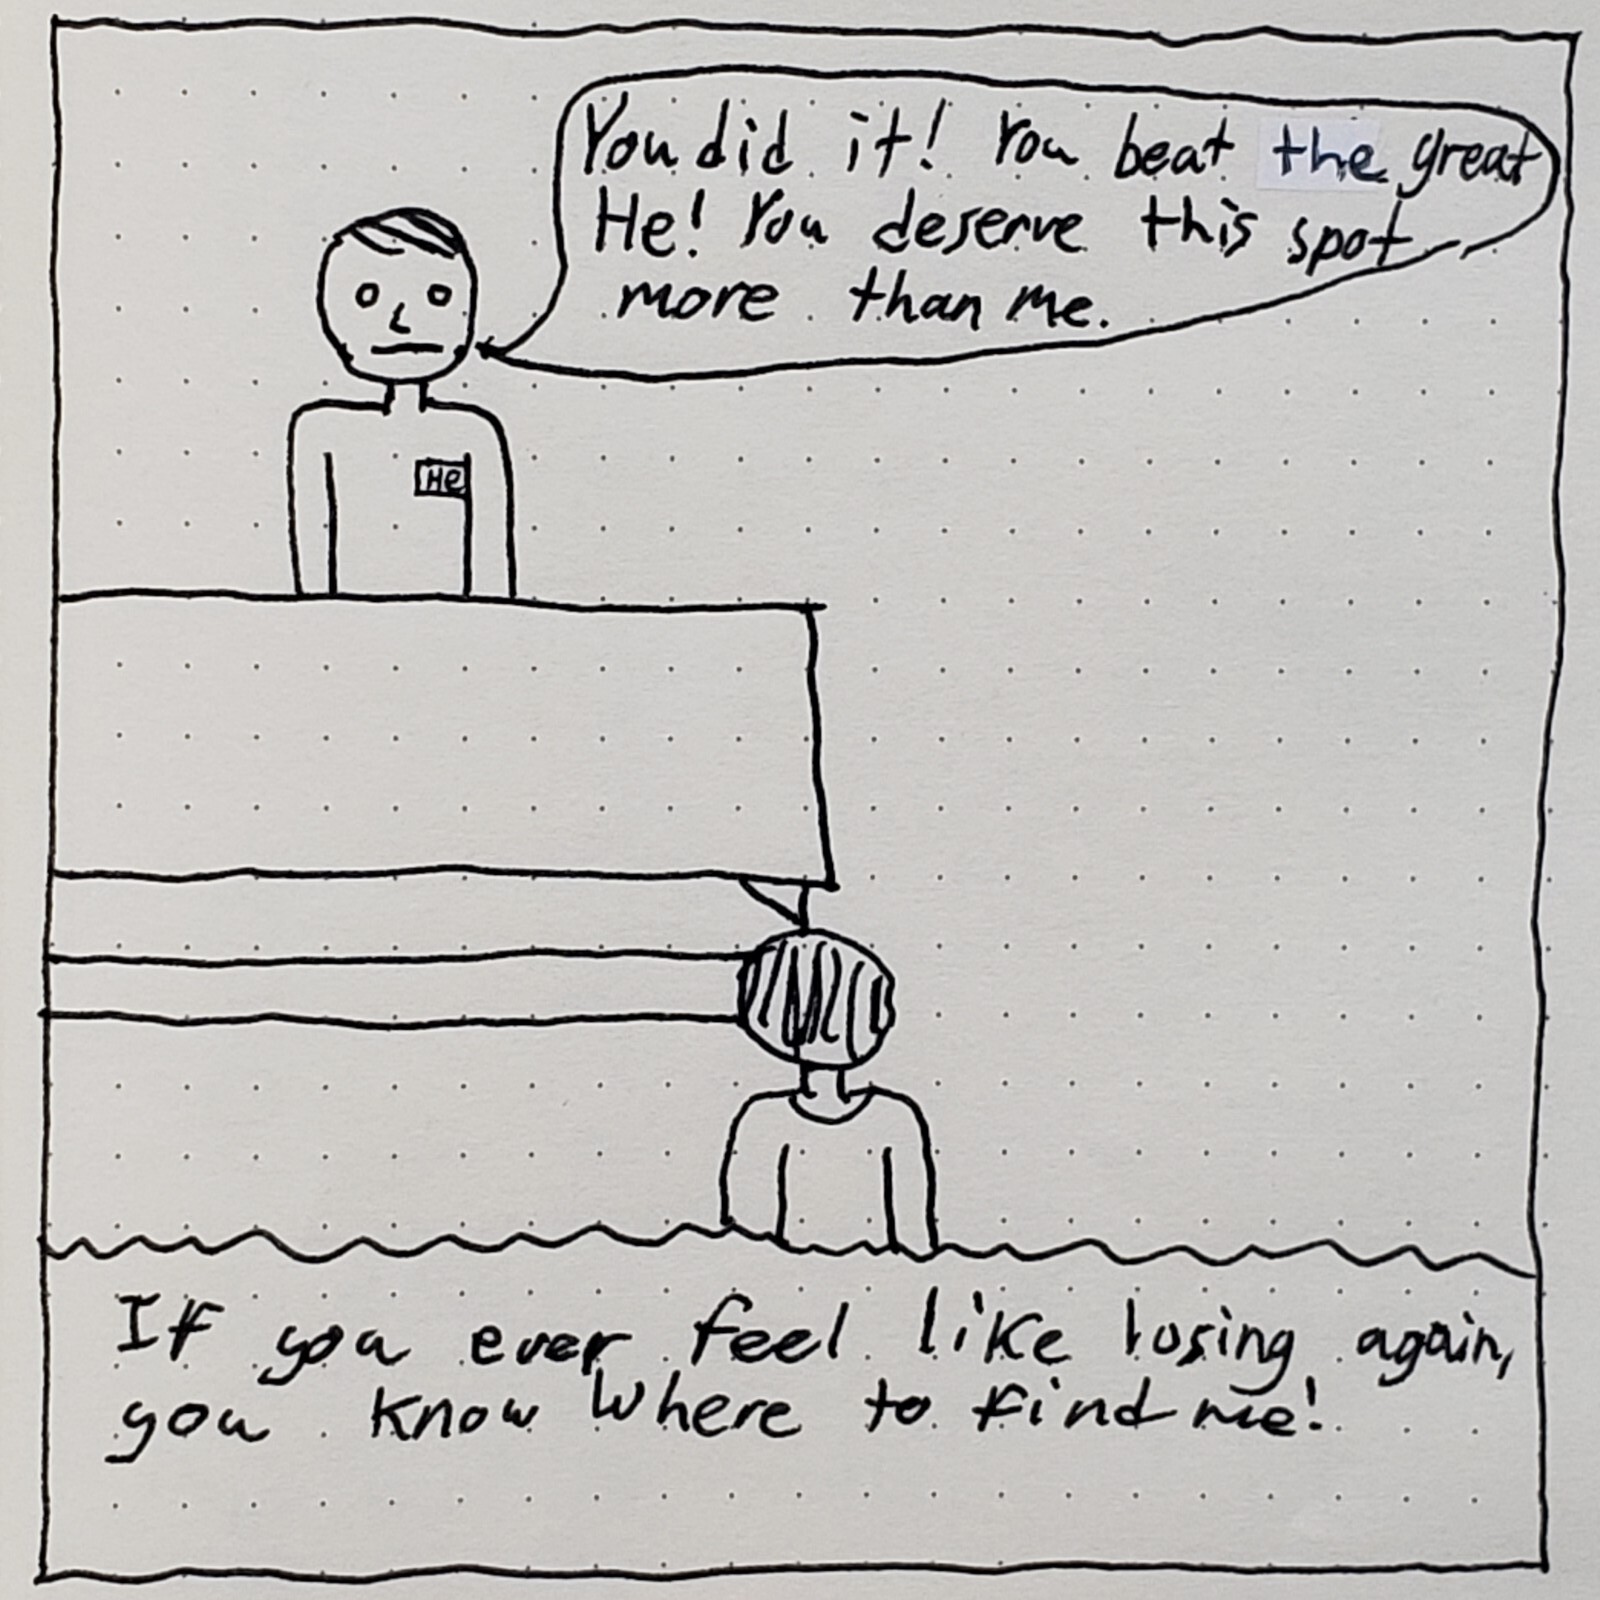 You did it! You beat the great
He! You deserve this spot
more than me.
He
If you ever feel like losing again,
you know where to find me!